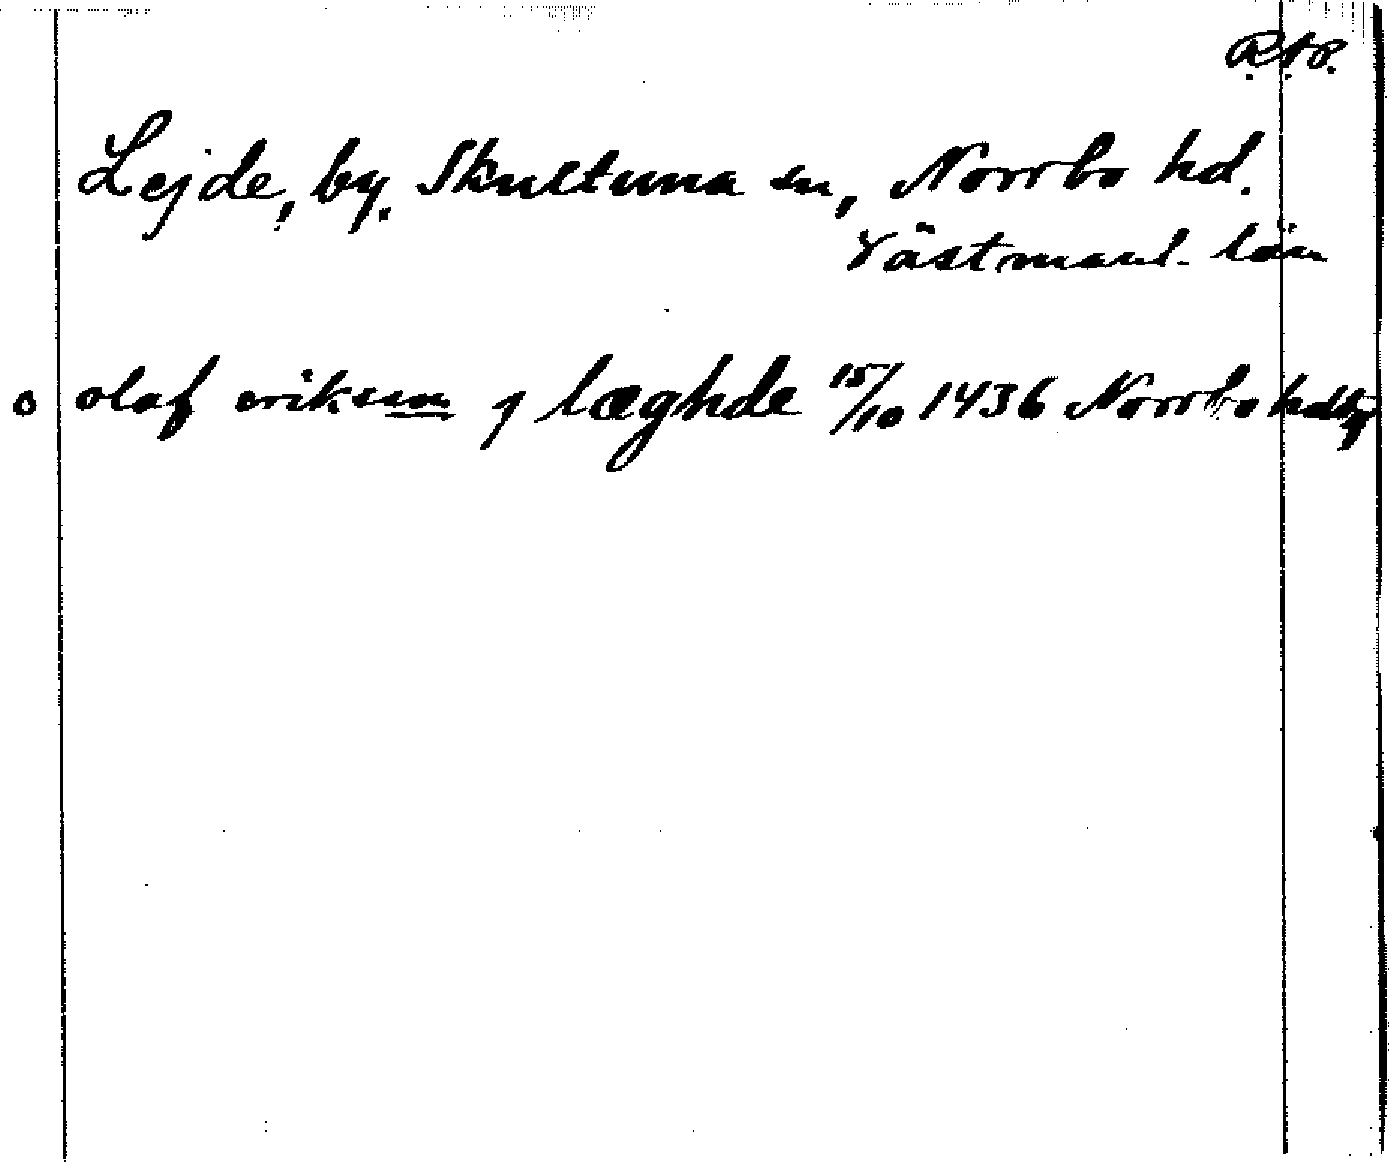 R.A.P.
Lejde, by. Skultuna sn, Norrbo hd.
Västmanl. län
o olaf erikson j læghde 15/10 1436 Norrbo hdtg